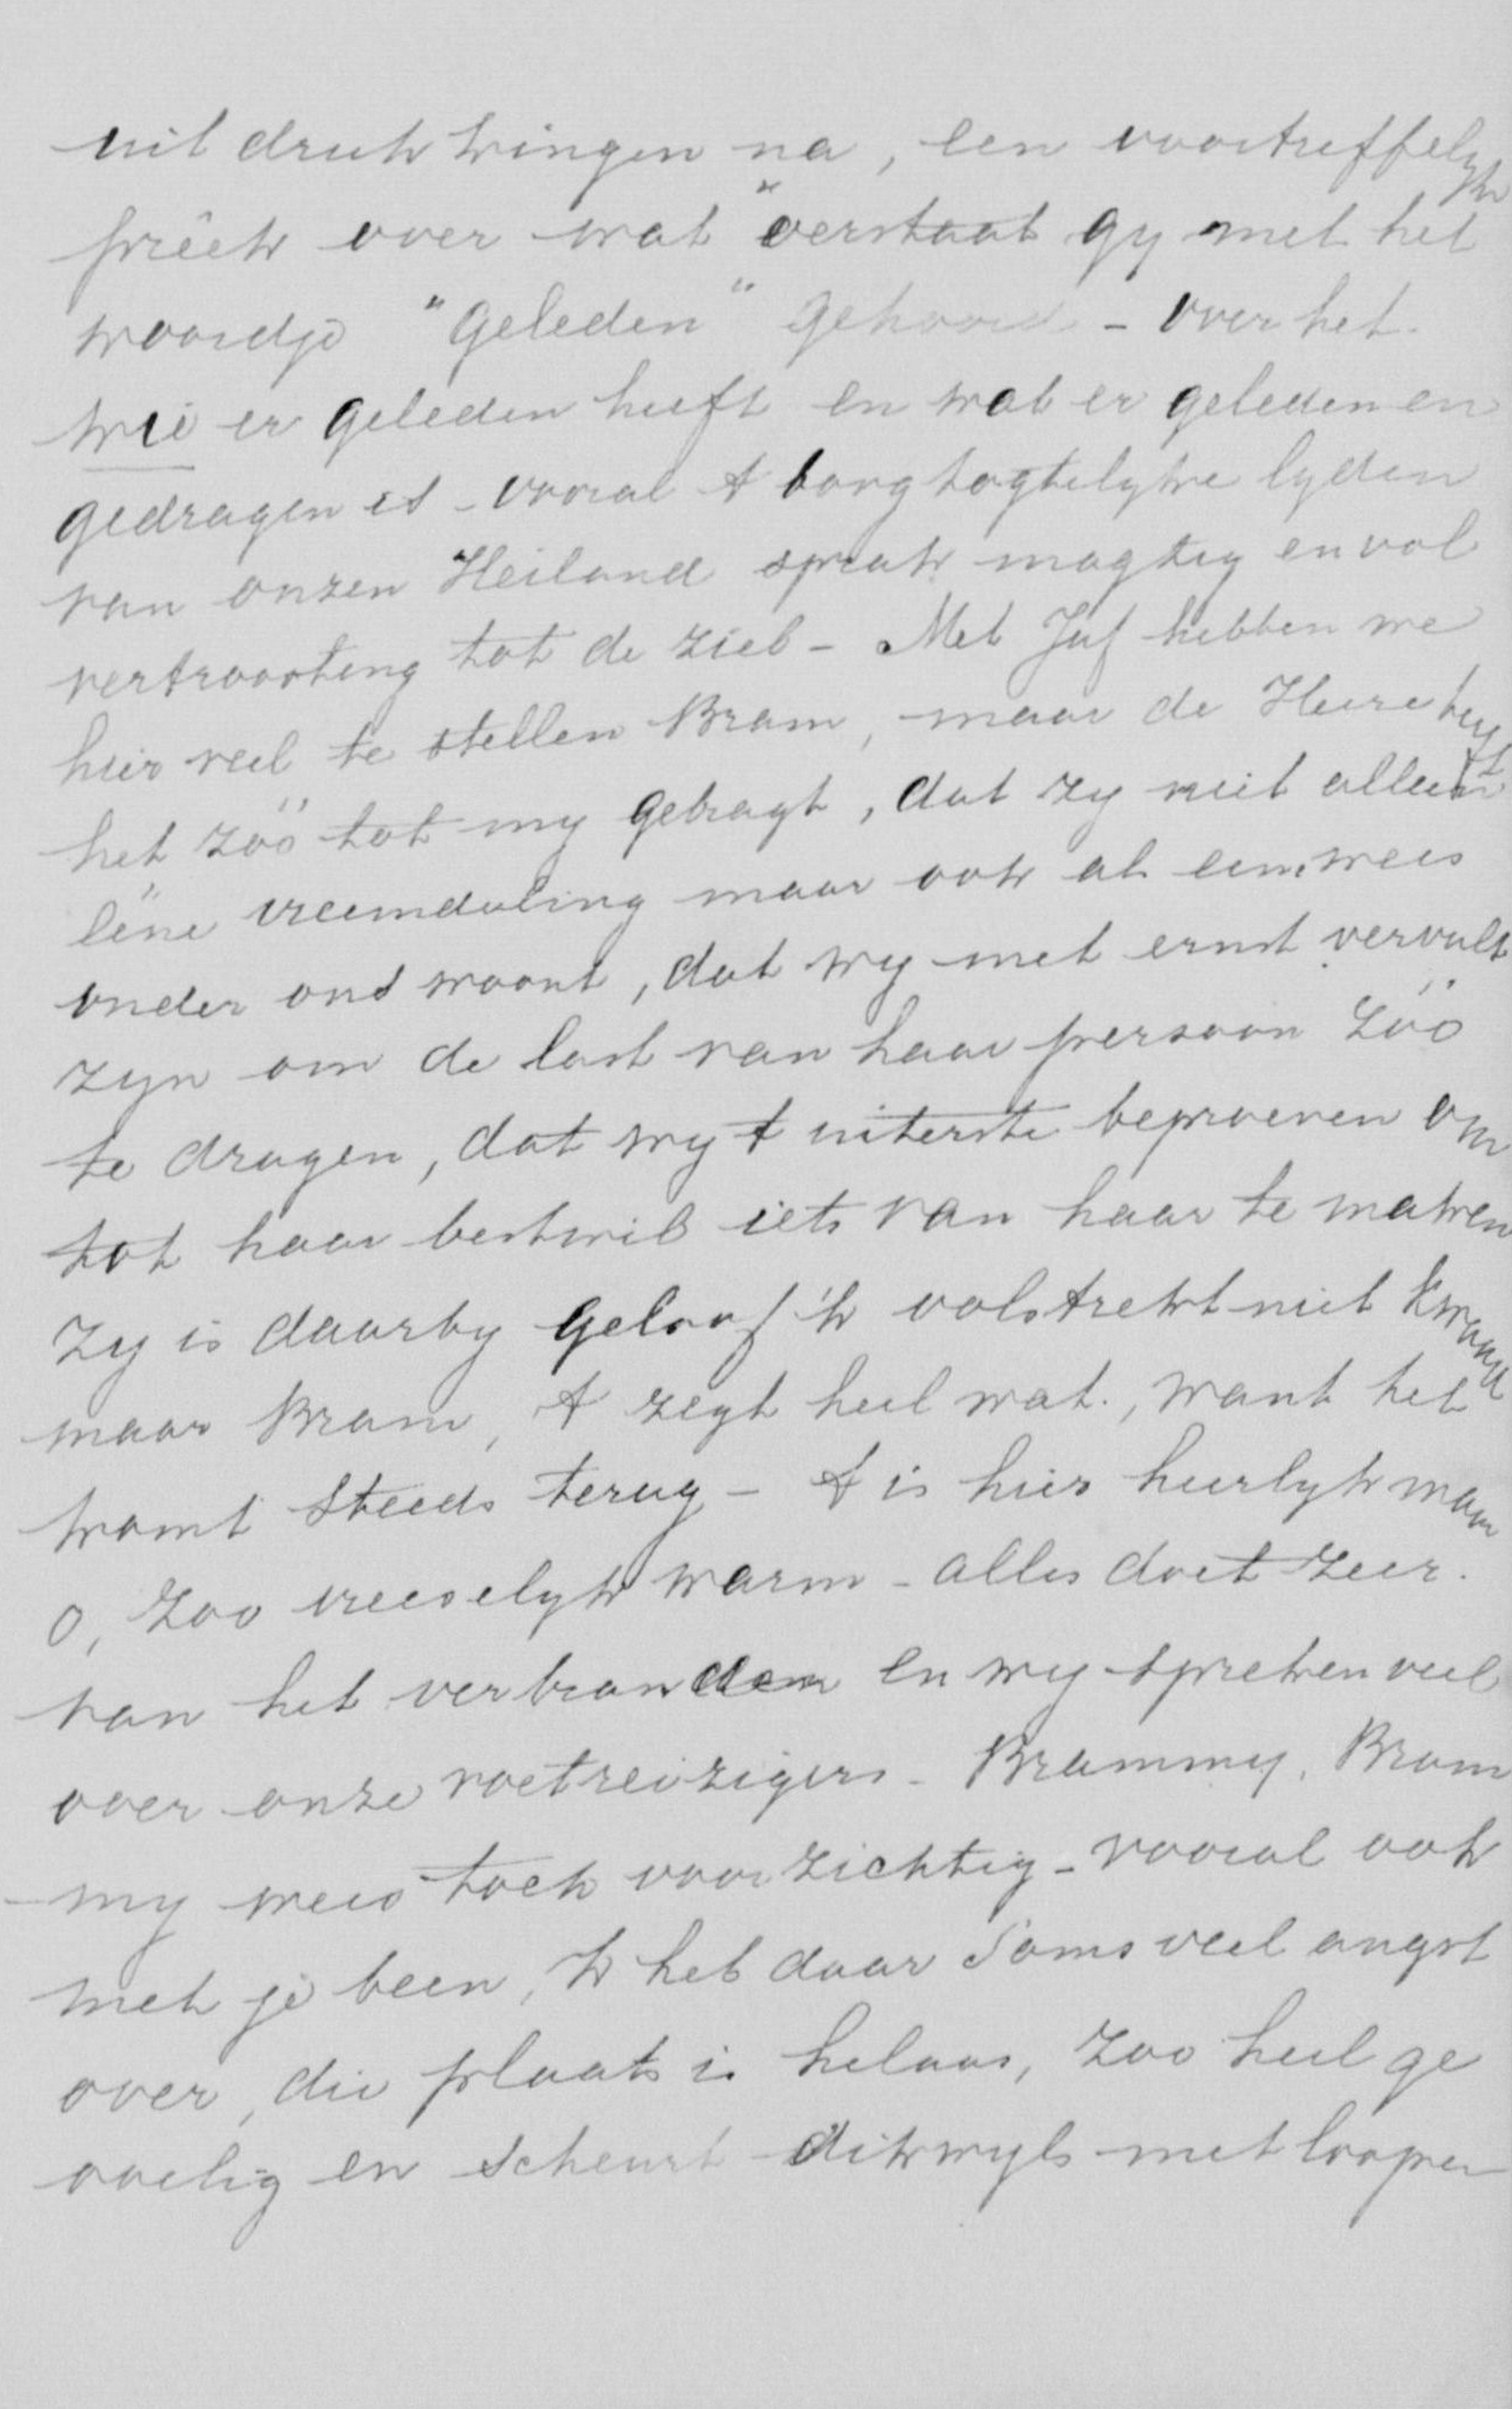 uitdrukkingen na, een voortreffelyke
preêk over wat "verstaat gy met het
woordje "geleden" gehoord - over het
wie er geleden heeft en wat er geleden en
gedragen is - vooral 't borgtogtelyke lyden
van onzen Heiland sprak magtig en vol
vertroosting tot de ziel - Met Juf hebben we
hier veel te stellen Bram, maar de Heere heeft
het zóó tot my gebragt, dat zy niet alleen
léne vreemdeling maar ook als een wees
onder ons woont, dat wy met ernst vervult
zyn om de last van haar persoon zóó
te dragen, dat wy 't uiterste beproeven om
tot haar bestwil iets van haar te maken
Zy is daarby geloof 'k volstrekt niet kwaad
maar Bram, 't zegt heel wat, want het
komt steeds terug - 't is hier heerlyk maar
o, zoo vreeselyk warm - alles doet zeer.
van het verbranden en wy spreken veel
over onze voetreizigers - Brammy, Bram
my wees toch voorzichtig - vooral ook
met je been, 'k heb daar soms veel angst
over, die plaats is helaas, zoo heel ge
voelig en scheurt dikwyls met loopen